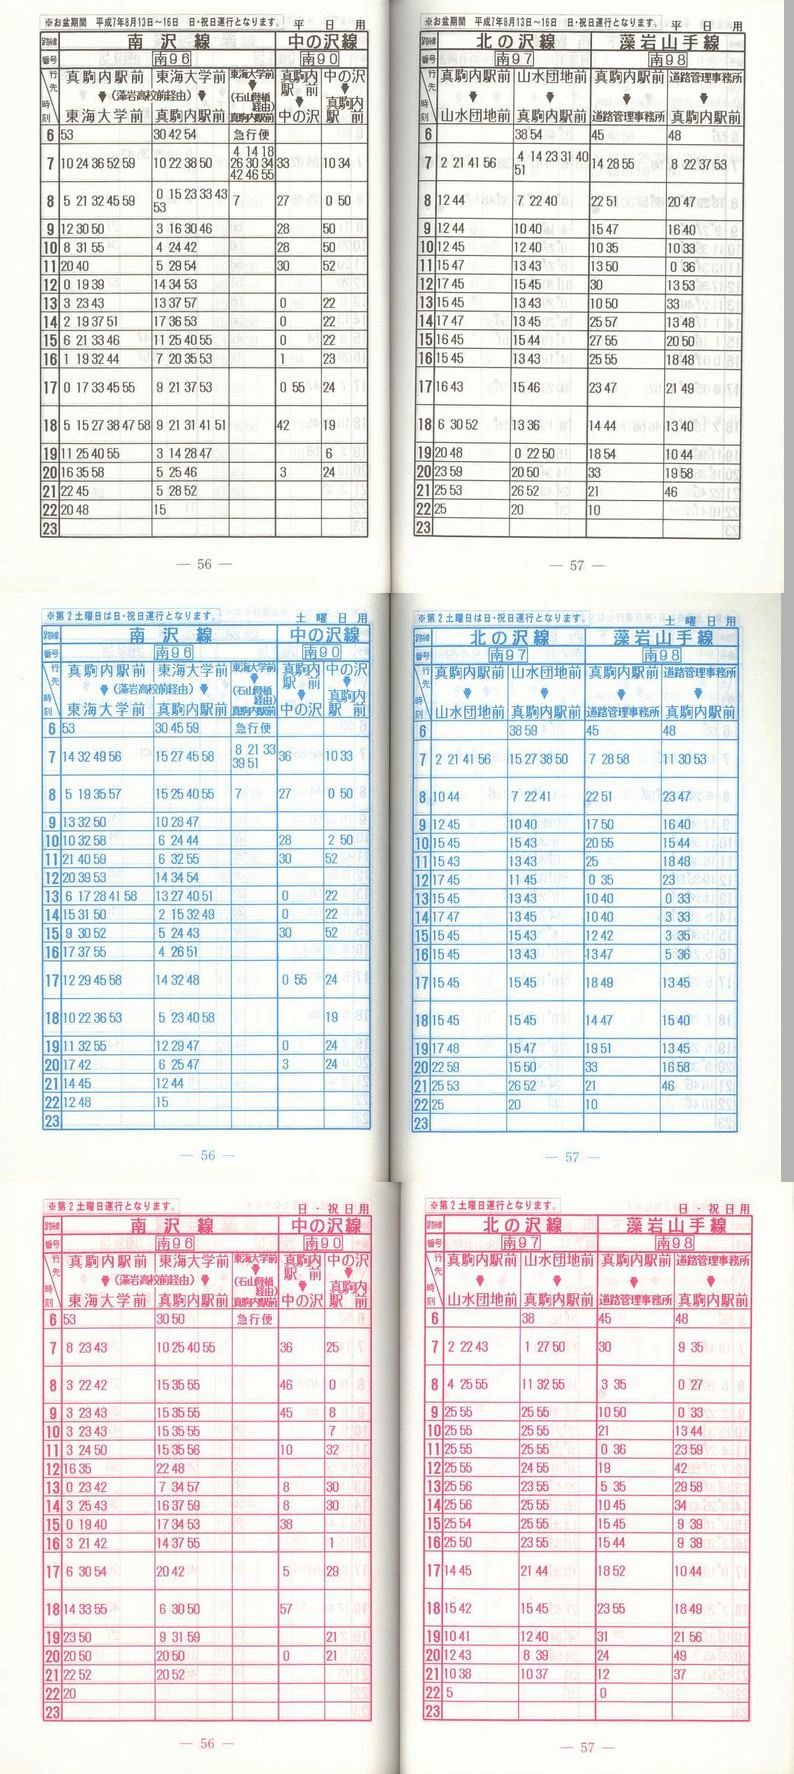 ※お盆期間 平成7年8月13日～16日 日・祝日運行となります。 平日用
路線 南沢線 中の沢線
番号 南96 南90
行先 真駒内駅前 東海大学前 東海大学前 真駒内駅前 中の沢
(藻岩高校前経由) (石山陸橋経由)
時刻 東海大学前 真駒内駅前 真駒内駅前 中の沢 真駒内駅前
6 53 30 42 54 急行便
7 10 24 36 52 59 10 22 38 50 4 14 18 26 30 34 42 46 55 33 10 34
8 5 21 32 45 59 0 15 23 33 43 53 7 27 0 50
9 12 30 50 3 16 30 46 28 50
10 8 31 55 4 24 42 28 50
11 20 40 5 29 54 30 52
12 0 19 39 14 34 53
13 3 23 43 13 37 57 0 22
14 2 19 37 51 17 36 53 0 22
15 6 21 33 46 11 25 40 55 0 22
16 1 19 32 44 7 20 35 53 1 23
17 0 17 33 45 55 9 21 37 53 0 55 24
18 5 15 27 38 47 58 9 21 31 41 51 42 19
19 11 25 40 55 3 14 28 47 6
20 16 35 58 5 25 46 3 24
21 22 45 5 28 52
22 20 48 15
23
— 56 —
※お盆期間 平成7年8月13日～16日 日・祝日運行となります。 平日用
路線 北の沢線 藻岩山手線
番号 南97 南98
行先 真駒内駅前 山水団地前 真駒内駅前 道路管理事務所
時刻 山水団地前 真駒内駅前 道路管理事務所 真駒内駅前
6 38 54 45 48
7 2 21 41 56 4 14 23 31 40 51 14 28 55 8 22 37 53
8 12 44 7 22 40 22 51 20 47
9 12 44 10 40 15 47 16 40
10 12 45 12 40 10 35 10 33
11 15 47 13 43 13 50 0 36
12 17 45 15 45 30 13 53
13 15 45 13 43 10 50 33
14 17 47 13 45 25 57 13 48
15 16 45 15 44 27 55 20 50
16 15 45 13 43 25 55 18 48
17 16 43 15 46 23 47 21 49
18 6 30 52 13 36 14 44 13 40
19 20 48 0 22 50 18 54 10 44
20 23 59 20 50 33 19 58
21 25 53 26 52 21 46
22 25 20 10
23
— 57 —
※第2土曜日は日・祝日運行となります。 土曜日用
路線 南沢線 中の沢線
番号 南96 南90
行先 真駒内駅前 東海大学前 東海大学前 真駒内駅前 中の沢
(藻岩高校前経由) (石山陸橋経由)
時刻 東海大学前 真駒内駅前 真駒内駅前 中の沢 真駒内駅前
6 53 30 45 59 急行便
7 14 32 49 56 15 27 45 58 8 21 33 39 51 36 10 33
8 5 19 35 57 15 25 40 55 7 27 0 50
9 13 32 50 10 28 47
10 10 32 58 6 24 44 28 2 50
11 21 40 59 6 32 55 30 52
12 20 39 53 14 34 54
13 6 17 28 41 58 13 27 40 51 0 22
14 15 31 50 2 15 32 49 0 22
15 9 30 52 5 24 43 30 52
16 17 37 55 4 26 51
17 12 29 45 58 14 32 48 0 55 24
18 10 22 36 53 5 23 40 58 19
19 11 32 55 12 29 47 0 24
20 17 42 6 25 47 3 24
21 14 45 12 44
22 12 48 15
23
— 56 —
※第2土曜日は日・祝日運行となります。 土曜日用
路線 北の沢線 藻岩山手線
番号 南97 南98
行先 真駒内駅前 山水団地前 真駒内駅前 道路管理事務所
時刻 山水団地前 真駒内駅前 道路管理事務所 真駒内駅前
6 38 59 45 48
7 2 21 41 56 15 27 38 50 7 28 58 11 30 53
8 10 44 7 22 41 22 51 23 47
9 12 45 10 40 17 50 16 40
10 15 45 15 43 20 55 15 44
11 15 43 13 43 25 18 48
12 17 45 11 45 0 35 23
13 15 45 13 45 10 40 0 33
14 17 47 13 45 10 40 3 33
15 15 45 13 45 12 42 3 35
16 15 45 13 43 13 47 5 36
17 15 45 15 45 18 49 13 45
18 15 45 15 45 14 47 15 40
19 17 48 15 47 19 51 13 45
20 22 59 15 50 33 16 58
21 25 53 26 52 21 46
22 25 20 10
23
— 57 —
※第2土曜日運行となります。 日・祝日用
路線 南沢線 中の沢線
番号 南96 南90
行先 真駒内駅前 東海大学前 東海大学前 真駒内駅前 中の沢
(藻岩高校前経由) (石山陸橋経由)
時刻 東海大学前 真駒内駅前 真駒内駅前 中の沢 真駒内駅前
6 53 30 50 急行便
7 8 23 43 10 25 40 55 36 25
8 3 22 42 15 35 55 46 0
9 3 23 43 15 35 55 45 8
10 3 23 43 15 35 55 7
11 3 24 50 15 35 56 10 32
12 16 35 22 48
13 0 23 42 7 34 57 8 30
14 3 25 43 16 37 59 8 30
15 0 19 40 17 34 53 38
16 3 21 42 14 37 55 1
17 6 30 54 20 42 5 29
18 14 33 55 6 30 50 57
19 23 50 9 31 59 21
20 20 50 20 50 0 21
21 22 52 20 52
22 20
23
— 56 —
※第2土曜日運行となります。 日・祝日用
路線 北の沢線 藻岩山手線
番号 南97 南98
行先 真駒内駅前 山水団地前 真駒内駅前 道路管理事務所
時刻 山水団地前 真駒内駅前 道路管理事務所 真駒内駅前
6 38 45 48
7 2 22 43 1 27 50 30 9 35
8 4 25 55 11 32 55 3 35 0 27
9 25 55 25 55 10 50 0 33
10 25 55 25 55 21 13 44
11 25 55 25 55 0 36 23 59
12 25 55 24 55 19 42
13 25 56 23 55 5 35 29 58
14 25 56 25 55 10 45 34
15 25 54 25 55 15 45 9 39
16 25 50 23 55 15 44 9 39
17 14 45 21 44 18 52 10 44
18 15 42 15 45 23 55 18 49
19 10 41 12 40 31 21 56
20 12 43 8 39 24 49
21 10 38 10 37 12 37
22 5 0
23
— 57 —